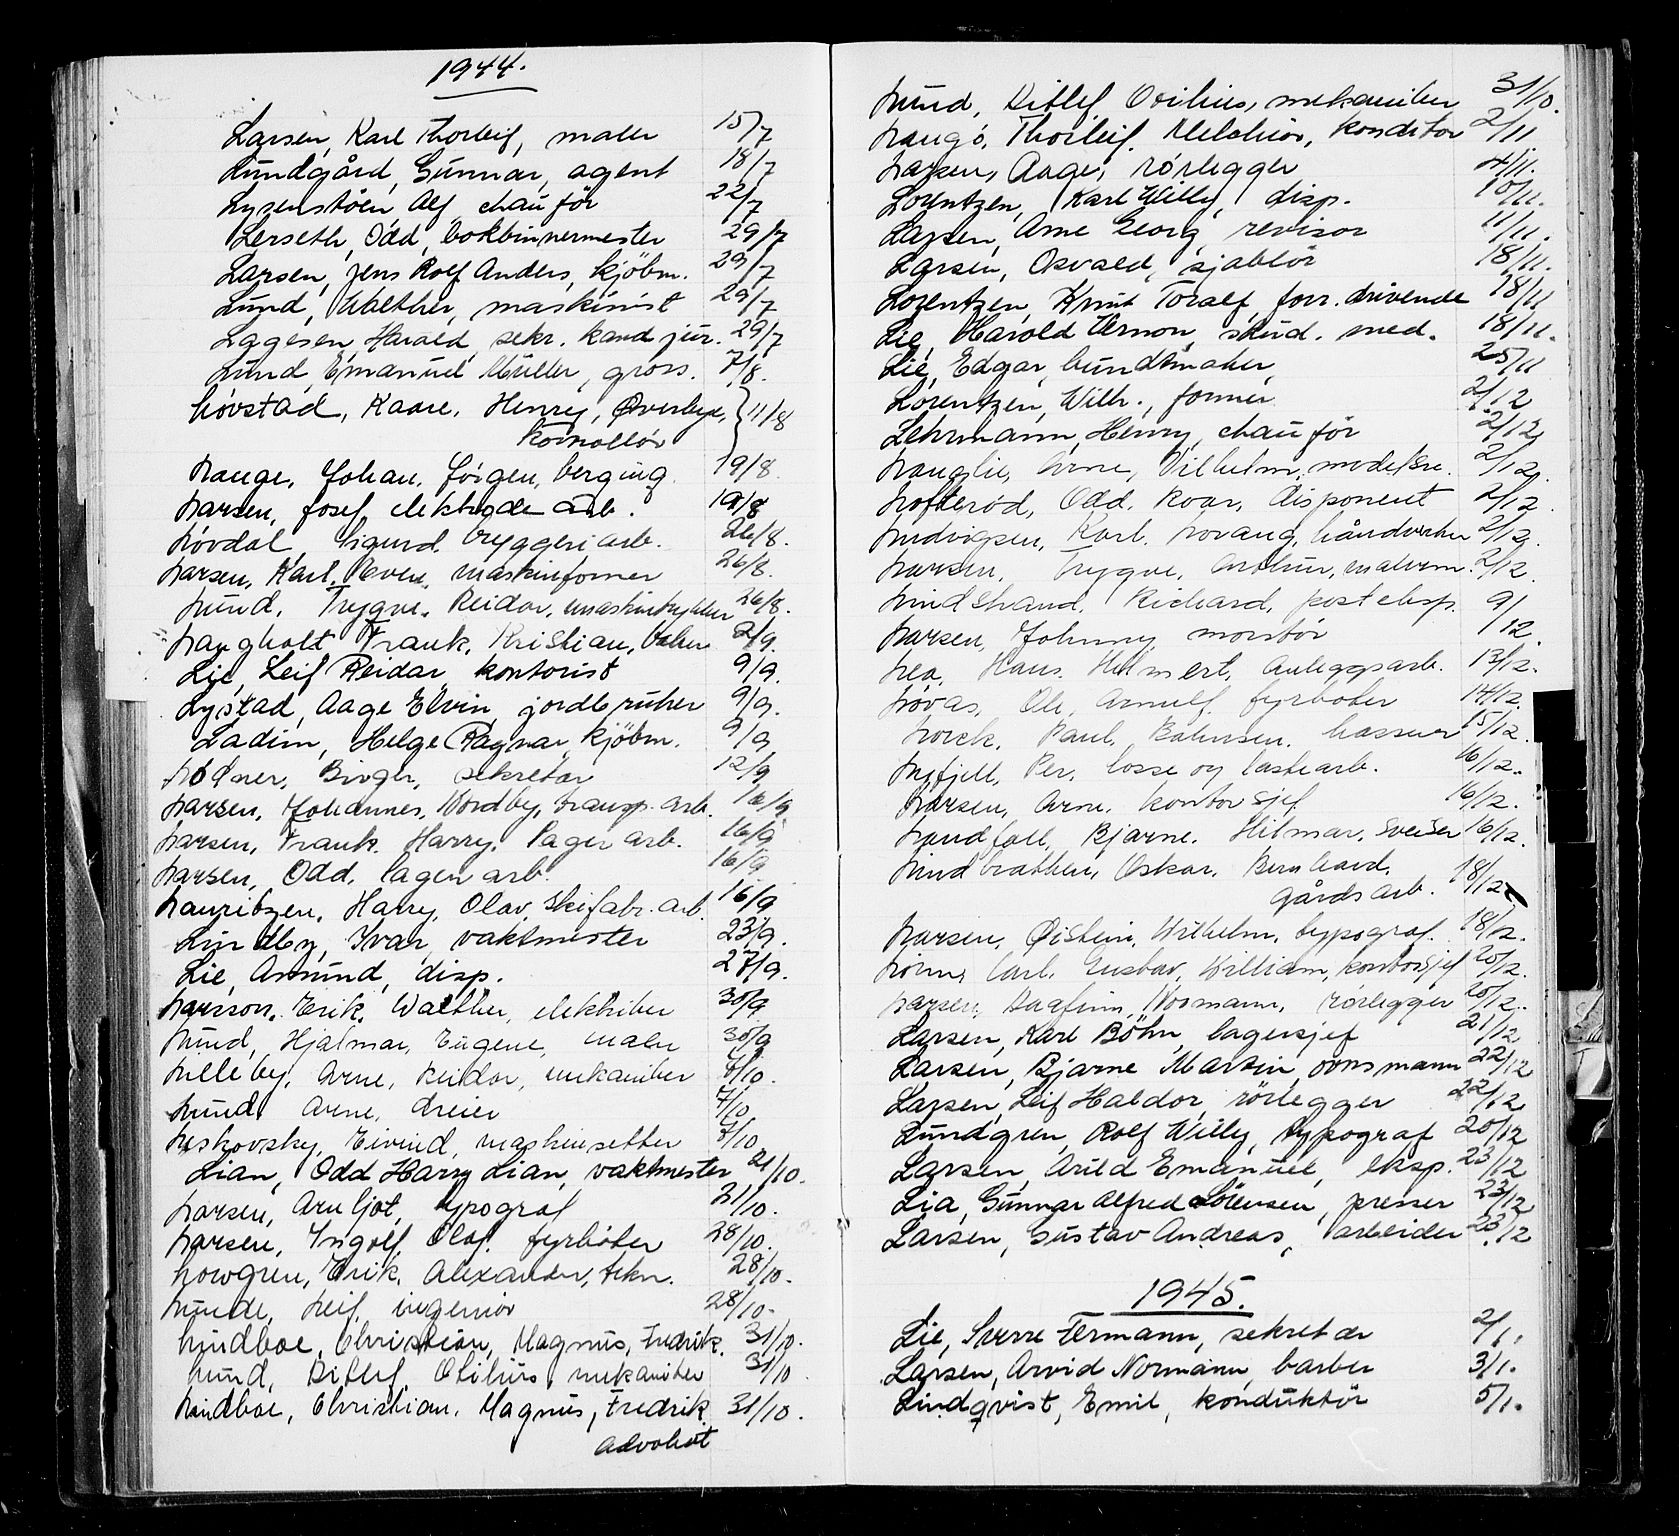 1944.
Larsen, Karl Thorleif, maler 15/7
Lundgård, Gunnar, agent 18/7
Lysenstöen Alf chauför 22/7
Lerseth, Odd, bokbinnermester 29/7
Larsen, Jens Rolf Anders, kjöbm. 29/7
Lund, Walther, maskinist 29/7
Lagesen, Harald, sekr. kand jur. 29/7
Lund, Emanuel Müller, gross. 7/8.
Lövstad, Kaare, Henry, Øverbye, } 11/8
kontrollör
Lange, Johan, Jörgen, berging 19/8
Larsen, Josef, elektrode arb. 19/8
Lövdal, Sigurd, bryggeriarb. 26/8.
Larsen, Karl, Even, maskinformer 26/8.
Lund, Trygve, Reidar, 26/8.
Langholt Frank, Kristian, baker 2/9.
Lie, Leif Reidar, kontorist 9/9.
Lystad, Aage Elvin, jordbruker 9/9.
Ladim, Helge Ragnar, kjöbm. 9/9
Lodner, Birger, sekretær 12/9
Larsen, Johannes, Nordby, transp. arb. 16/9
Larsen, Frank, Harry, lager arb. 16/9
Larsen, Odd, lager arb. 16/9
Lauritzen, Harry, Olav, skifabr. arb. 16/9
Lindby, Ivar, vaktmester 23/9.
Lie, Amund, disp. 27/9.
Larsson, Erik, Walther, elektriker 30/9
Lund, Hjalmar, Eugene, maler 30/9
Lilleby, Arne, Reidar, mekaniker 7/10.
Lund, Arne, dreier 7/10
Leskovsky, Eivind, maskinsetter 7/10
Lian, Odd Harry Lian, vaktmester 21/10.
Larsen, Arn Ljot, typograf 21/10.
Larsen, Ingolf, Olaf, fyrböter 28/10.
Lovgren, Erik, Alexander, tekn. 28/10.
Lunde, Leif, ingeniör 28/10-
Lindboe, Christian, Magnus, Fredrik. 31/10.
Lund, Ditlef, Otilius, mekaniker 31/10
Lindboe, Christian, Magnus, Fredrik 31/10.
advokat
Lund, Ditlef Otilius, mekaniker 31/10.
Langö, Thorleif, Melchior, konditor 2/11
Larsen, Aage, rörlegger 4/11.
Lorentzen, Karl Willy, disp. 10/11.
Larsen, Arne Georg, revisor 11/11.
Larsen, Osvald, sjablör 18/11.
Lorentzen, Knut Toralf, forr. drivende 18/11
Lie, Harold Vernon, stud. med. 18/11.
Lie, Edgar, bundtmaker, 25/11
Lorentzen, Wilh., former 2/12
Lehrmann, Henry, chauför 2/12
Langlie, Arne, Vilhelm, 2/12.
Lofteröd, Odd, Roar, disponent 2/12
Ludvigsen, Karl, Lovang, håndverker 2/12.
Larsen, Trygve, Arthur, malerm. 2/12.
Lindstrand, Richard, posteksp. 9/
Larsen, Johnny, montör /12.
Lea, Hans, Hilmert, anleggsarb. 13/12.
Lövås, Ole, Arnulf, fyrböter 14/12.
Lorck, Paul, Bahnsen, kasserer 15/12.
Lysfjell, Per, losse og lastearb. 16/12.
Larsen, Arne, kontorsjef 16/12.
Landfall, Bjarne, Hilmar, sveiser 16/12.
Lindbrathen, Oskar, Bernhard,
gårdsarb. 18/12
Larsen, Øistein, Wilhelm, typograf. 18/12.
Carl, Gustav, William, kontorsjef 20/12.
Larsen, Dagfinn, rörlegger 20/12.
Larsen, Karl Böhn, lagersjef 21/12
Larsen, Bjarne Martin, ovnsmann 22/12
Larsen, Leif Haldor, rörlegger 22/12.
Lundgren, Rolf Willy, typograf 20/12
Larsen, Arild Emanuel, eksp. 23/12
Lia, Gunnar Alfred Sörensen, presser 23/12
Larsen, Gustav Andreas, arbeider 23/12
1945.
Lie, Sverre Fermann, sekretær 2/1.
Larsen, Arvid Normann, barber 3/1.
Lindqvist, Emil, konduktör 5/1.